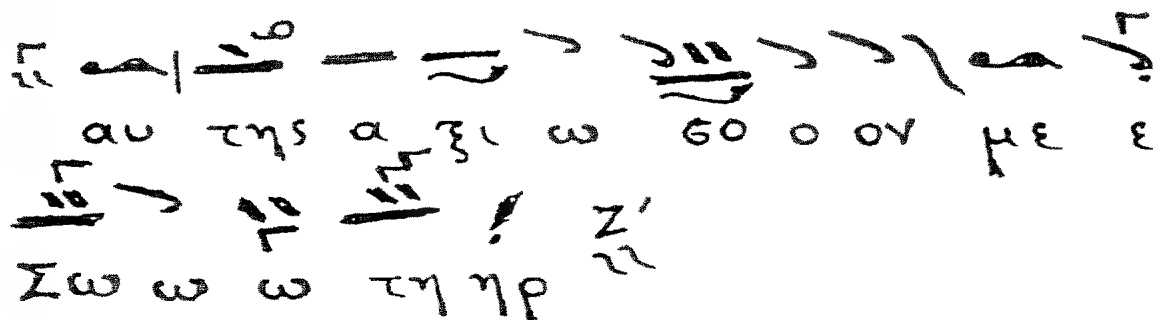 αυ της α ξι ω σο ο ον με ε
Σω ω ω τη ηρ Ζ′